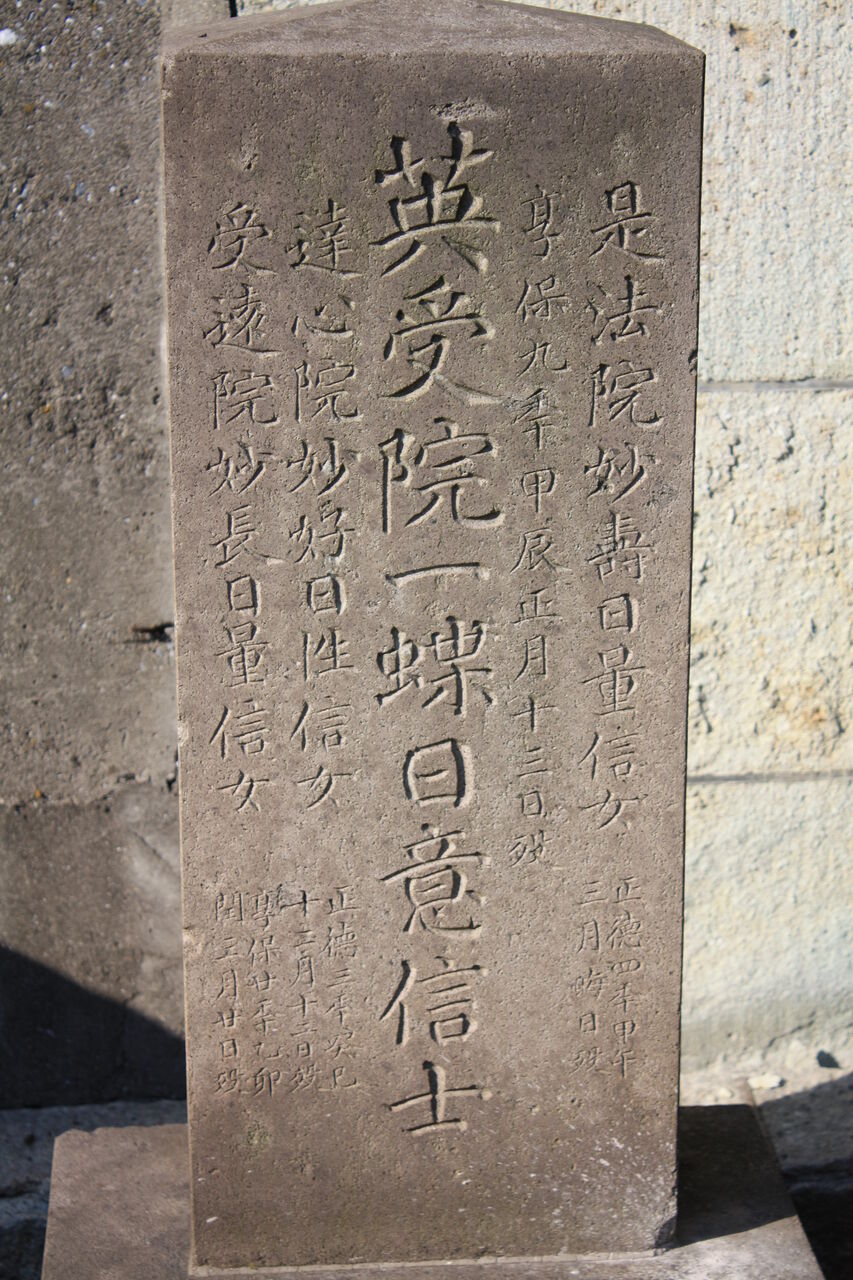 是法院妙壽日量信女
正德四年甲午
三月晦日歿
享保九季甲辰正月十三日歿
英受院一蝶日意信士
達心院妙好日性信女
正德三季癸巳
十二月十二日歿
受遠院妙長日量信女
享保廿季乙卯
閏三月廿日歿